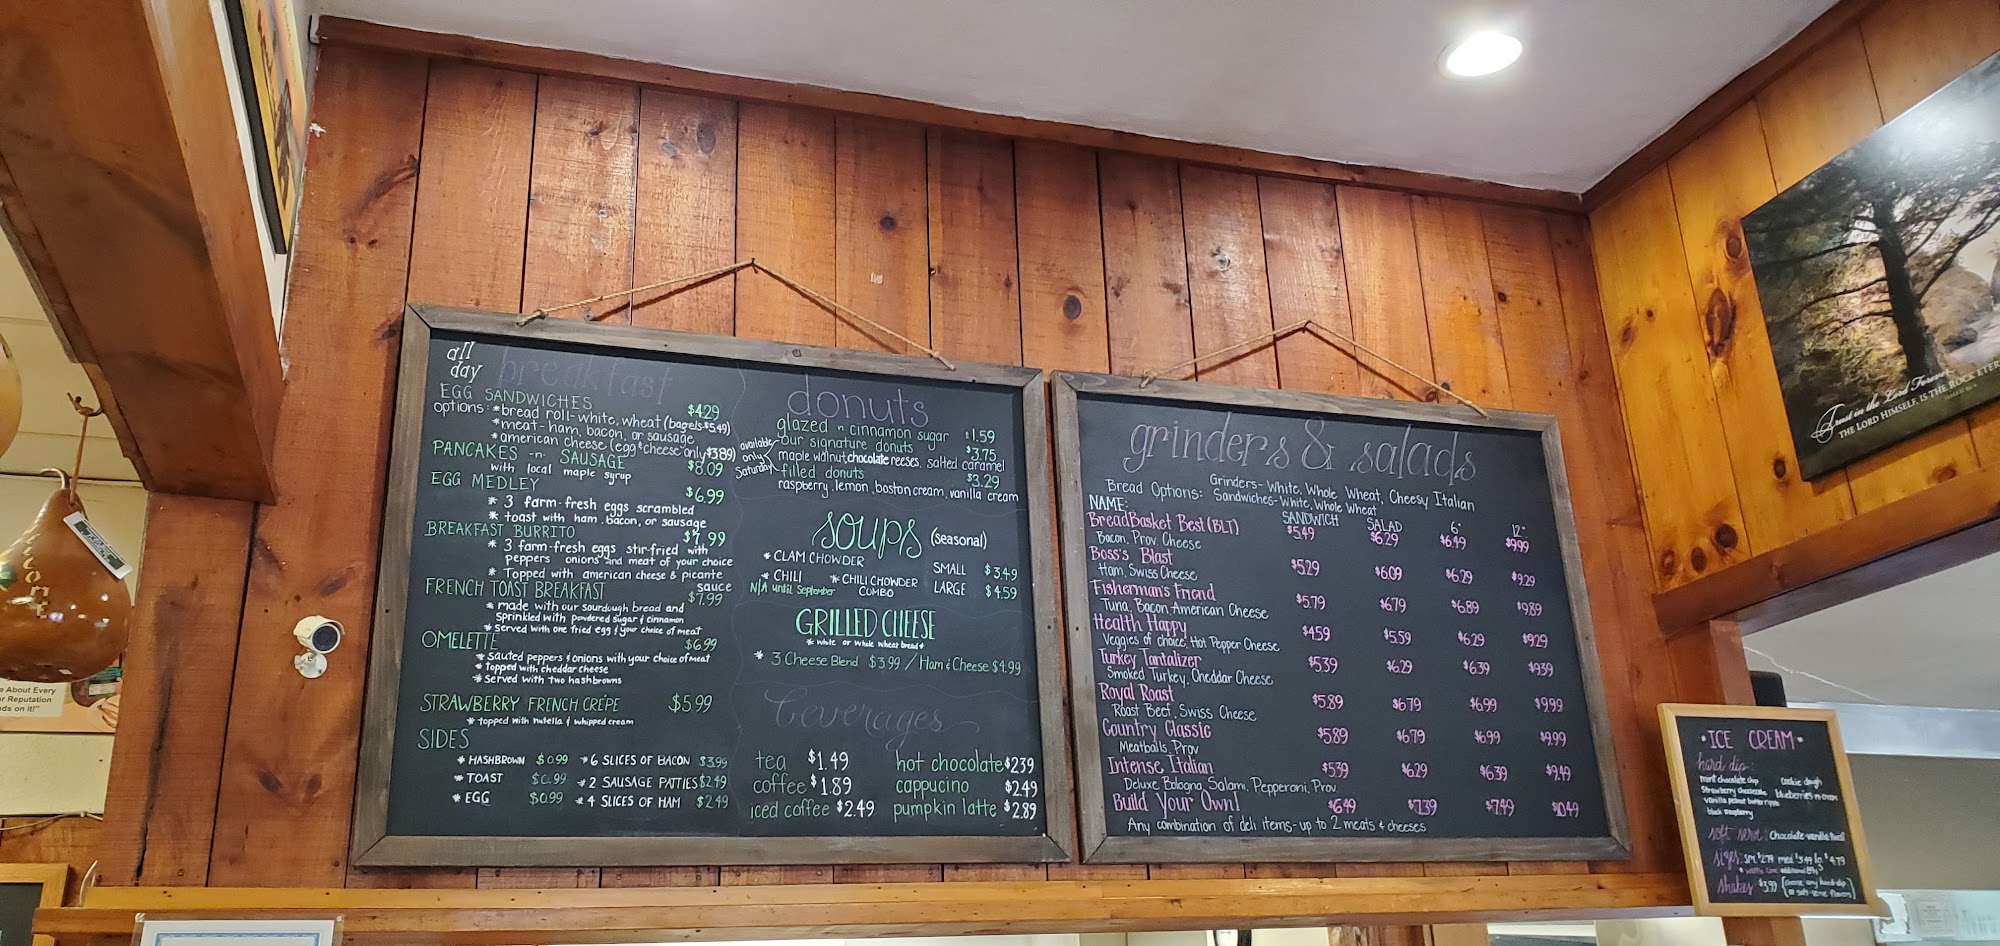 all day breakfast
EGG SANDWICHES $4.29
options: *bread roll-white, wheat (bagels $5.49)
*meat-ham, bacon, or sausage
*american cheese (egg & cheese only $3.89)
PANCAKES -n- SAUSAGE $8.09
with local maple syrup
EGG MEDLEY $6.99
* 3 farm-fresh eggs scrambled
* toast with ham, bacon, or sausage
BREAKFAST BURRITO $7.99
* 3 farm-fresh eggs stir-fried with
peppers onions and meat of your choice
* Topped with american cheese & picante sauce
FRENCH TOAST BREAKFAST $7.99
* made with our sourdough bread and
Sprinkled with powdered sugar & cinnamon
* Served with one fried egg & your choice of meat
OMELETTE $6.99
* sauted peppers & onions with your choice of meat
* topped with cheddar cheese
* served with two hashbrowns
STRAWBERRY FRENCH CRÉPE $5.99
* topped with nutella & whipped cream
SIDES
* HASHBROWN $0.99 *6 SLICES OF BACON $3.99
* TOAST $0.99 *2 SAUSAGE PATTIES $2.49
* EGG $0.99 *4 SLICES OF HAM $2.49
donuts
glazed n cinnamon sugar $1.59
our signature donuts $3.75
maple walnut, chocolate reeses, salted caramel
available only Saturday
filled donuts $3.29
raspberry, lemon, boston cream, vanilla cream
SOUPS (seasonal)
* CLAM CHOWDER
* CHILI * CHILI CHOWDER COMBO
N/A until September
SMALL $3.49
LARGE $4.59
GRILLED CHEESE
* white or whole wheat bread *
* 3 Cheese Blend $3.99 / Ham & Cheese $4.99
beverages
tea $1.49 hot chocolate $2.39
coffee $1.89 cappucino $2.49
iced coffee $2.49 pumpkin latte $2.89
grinders & salads
Grinders- White, Whole Wheat, Cheesy Italian
Bread Options: Sandwiches- White, Whole Wheat
NAME: SANDWICH SALAD 6" 12"
BreadBasket Best (BLT) $5.49 $6.29 $6.49 $9.99
Bacon, Prov. Cheese
Boss's Blast $5.29 $6.09 $6.29 $9.29
Ham, Swiss Cheese
Fisherman's Friend $5.79 $6.79 $6.89 $9.89
Tuna, Bacon, American Cheese
Health Happy $4.59 $5.59 $6.29 $9.29
Veggies of choice, Hot Pepper Cheese
Turkey Tantalizer $5.39 $6.29 $6.39 $9.39
Smoked Turkey, Cheddar Cheese
Royal Roast $5.89 $6.79 $6.99 $9.99
Roast Beef, Swiss Cheese
Country Classic $5.89 $6.79 $6.99 $9.99
Meatballs, Prov
Intense Italian $5.39 $6.29 $6.39 $9.49
Deluxe Bologna, Salami, Pepperoni, Prov.
Build Your Own! $6.49 $7.39 $7.49 $10.49
Any combination of deli items-up to 2 meats & cheeses
•ICE CREAM•
hard dip:
mint chocolate chip cookie dough
strawberry cheesecake blueberries n cream
vanilla peanut butter ripple
black raspberry
soft serve: Chocolate vanilla twist
sizes: sm. $2.79 med $3.49 lg $4.79
* waffle cone additional
shakes $3.99 (choose any hard-dip
or soft-serve flavors)
Trust in the Lord Forever,
THE LORD HIMSELF, IS THE ROCK ETER
Welcome
e About Every
r Reputation
ds on it!"